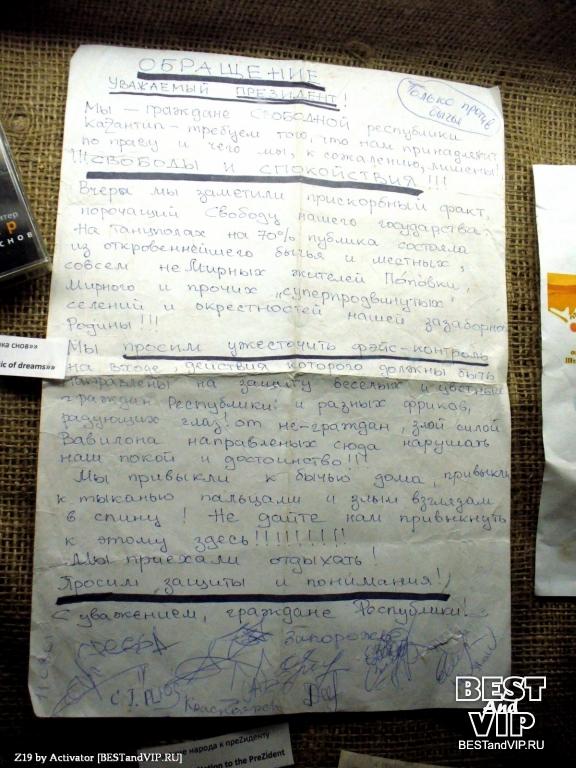 ОБРАЩЕНИЕ
УВАЖАЕМЫЙ ПРЕЗИДЕНТ!
Только против бычья
Мы — граждане СВОБОДНОЙ республики
КаZантип — требуем того, что нам принадлежит
по праву и чего мы, к сожалению, лишены!
!!!СВОБОДЫ И СПОКОЙСТВИЯ!!!
Вчера мы заметили прискорбный факт,
порочащий Свободу нашего государства?
На танцполах на 70% публика состояла
из откровеннейшего бычья и местных,
совсем не Мирных жителей Поповки,
Мирного и прочих „суперпродвинутых"
селений и окрестностей нашей зазаборной
Родины!!!
Мы просим ужесточить фэйс-контроль
на входе, действия которого должны быть
направлены на защиту веселых и цветных
граждан Республики! и разных фриков,
радующих глаз! от не-граждан, злой силой
Вавилона направленых сюда нарушать
наш покой и достоинство!!!
Мы привыкли к бычью дома, привыкли
к тыканью пальцами и злым взглядам
в спину! Не дайте нам привыкнуть
к этому здесь!!!!!!!!!
Мы приехали отдыхать!
Просим защиты и понимания!
С уважением, граждане Республики!
Запорожье
Красноярск
снов
ка снов»»
ic of dreams»»
ие народа к преZиденту
tion to the PreZident
BEST
And
VIP
BESTandVIP.RU
Z19 by Activator [BESTandVIP.RU]